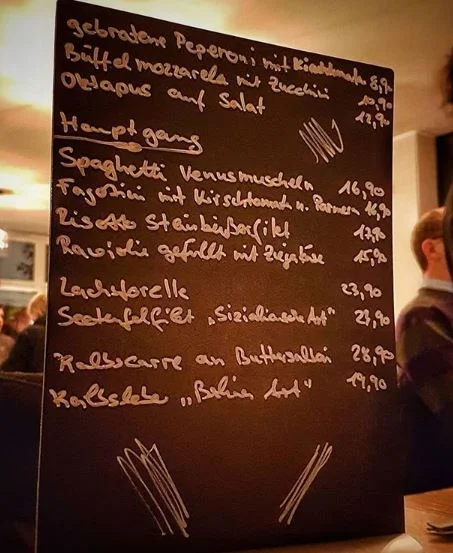 gebratene Peperoni mit Kirschtomaten 8,90
Büffelmozzarella mit Zucchini 10,90
Oktapus auf Salat 12,90
Hauptgang
Spaghetti Venusmuscheln 16,90
Fagottini mit Kirschtomaten u. Parmesan 16,90
Risotto Steinbeißerfilet 17,90
Raviolie gefüllt mit Ziegenkäse 15,90
Lachsforelle 23,90
Seeteufelfilet „Sizialianische Art" 24,90
Kalbscarre an Buttersalbei 28,90
Kalbsleber „Berliner Art" 19,90